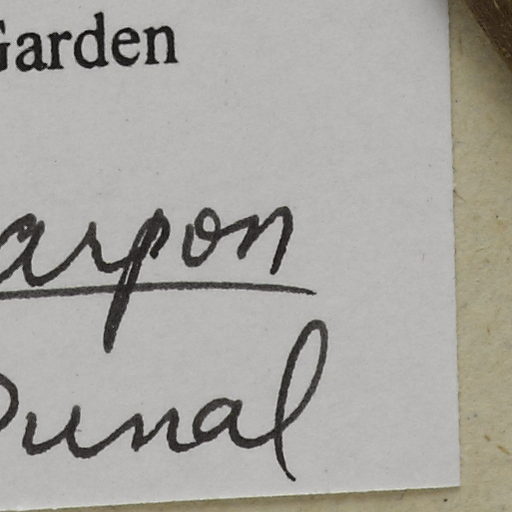 Garden
arpon
Dunal